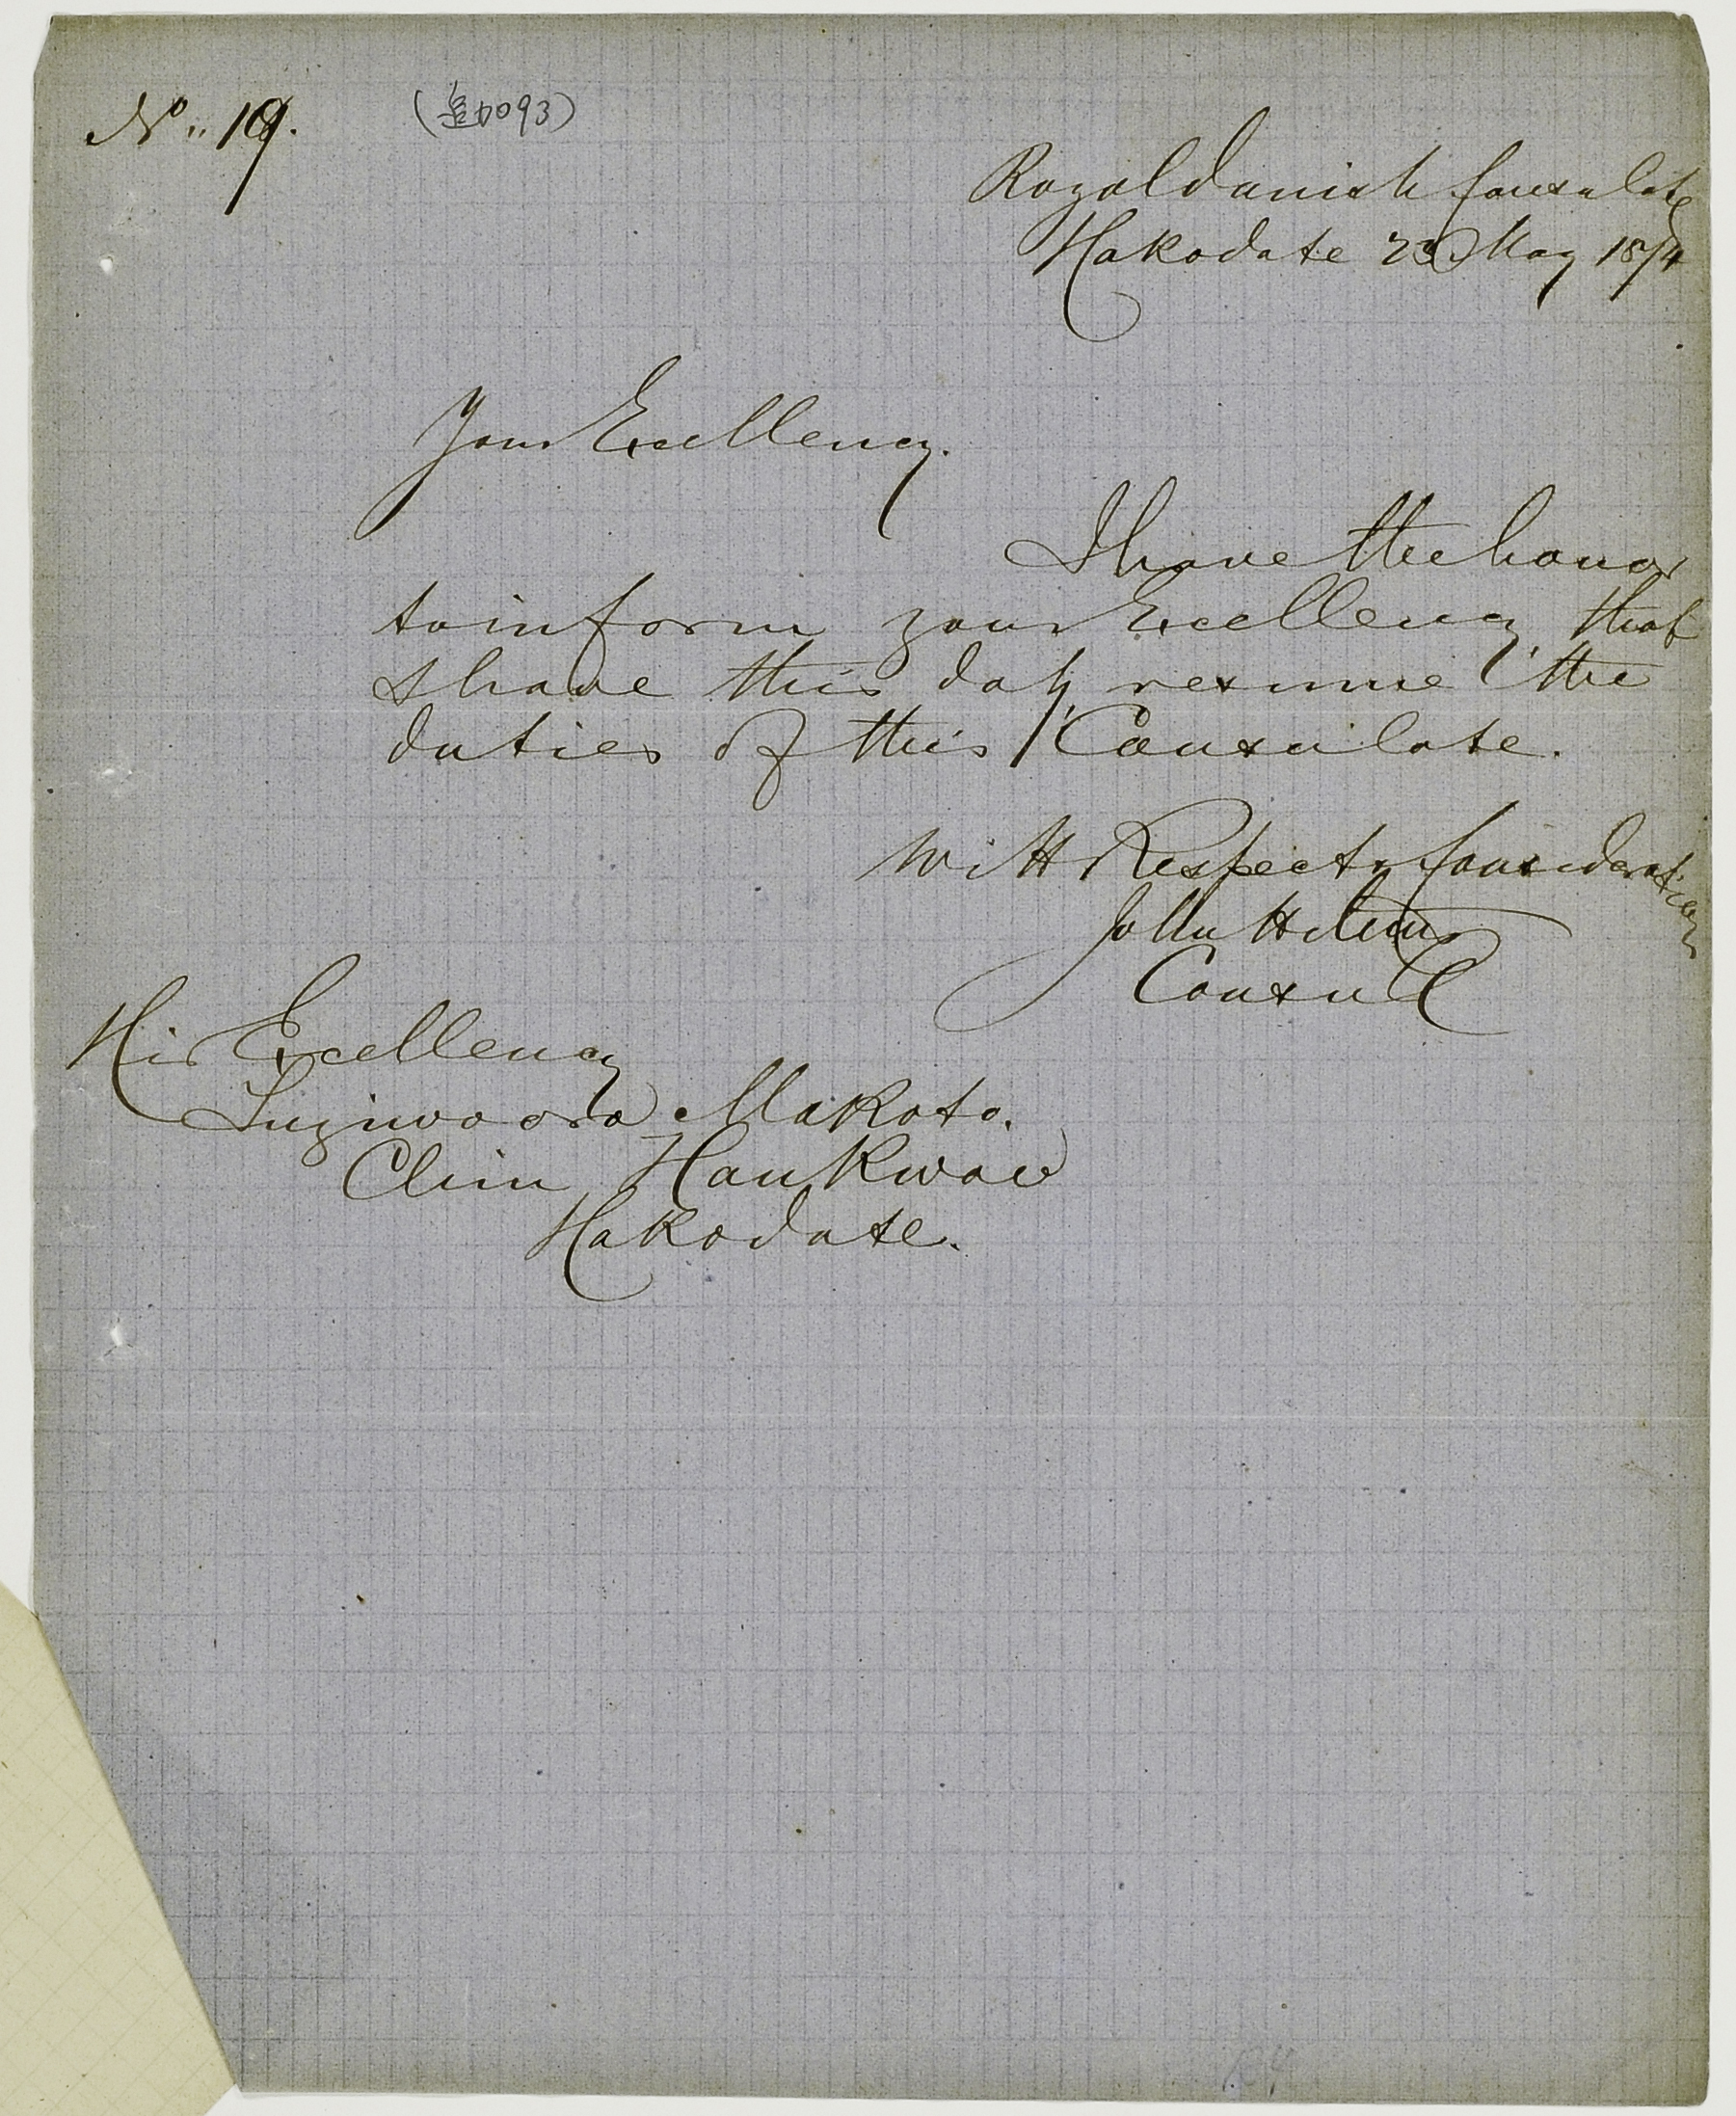 Nº 19.
(追加093)
Royal Danish Consulate
Hakodate 23 May 1874
Your Excellency.
I have the honor
to inform your Excellency, that
I have this day, resume the
duties of this Consulate.
With Respect & Consideration
John H
Consul
His Excellency
Sugiwoora Makoto.
Chiu Hankwan
Hakodate.